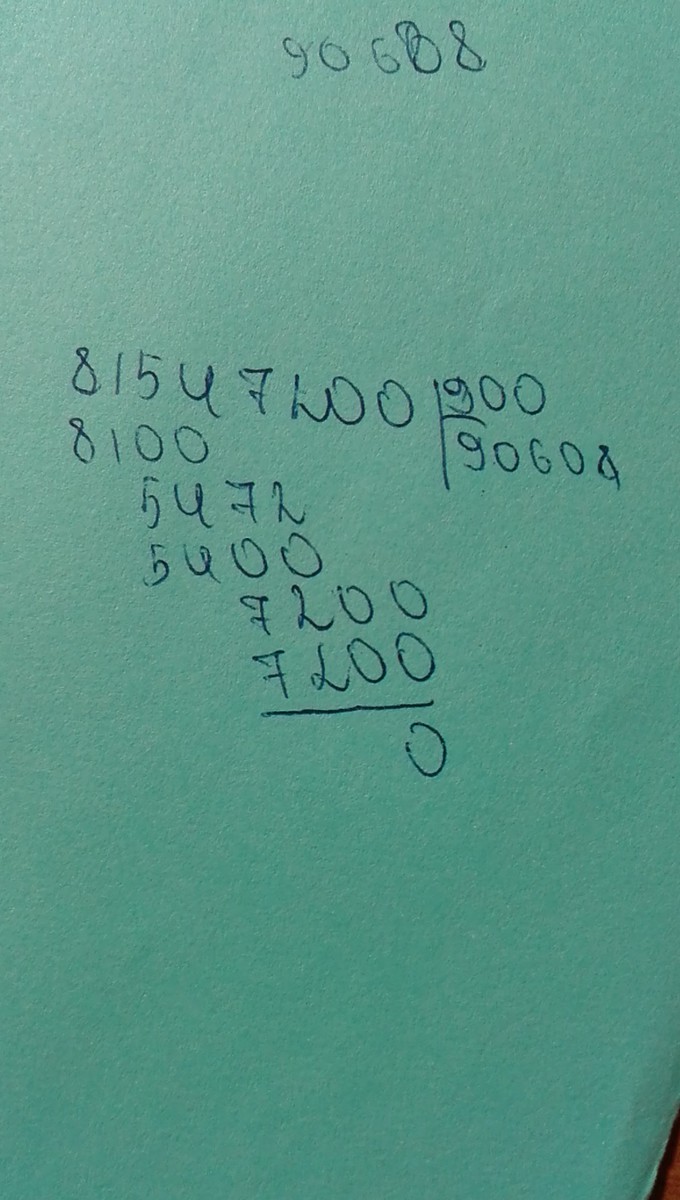 90608
81547200 900
8100 90608
5472
5400
7200
7200
0